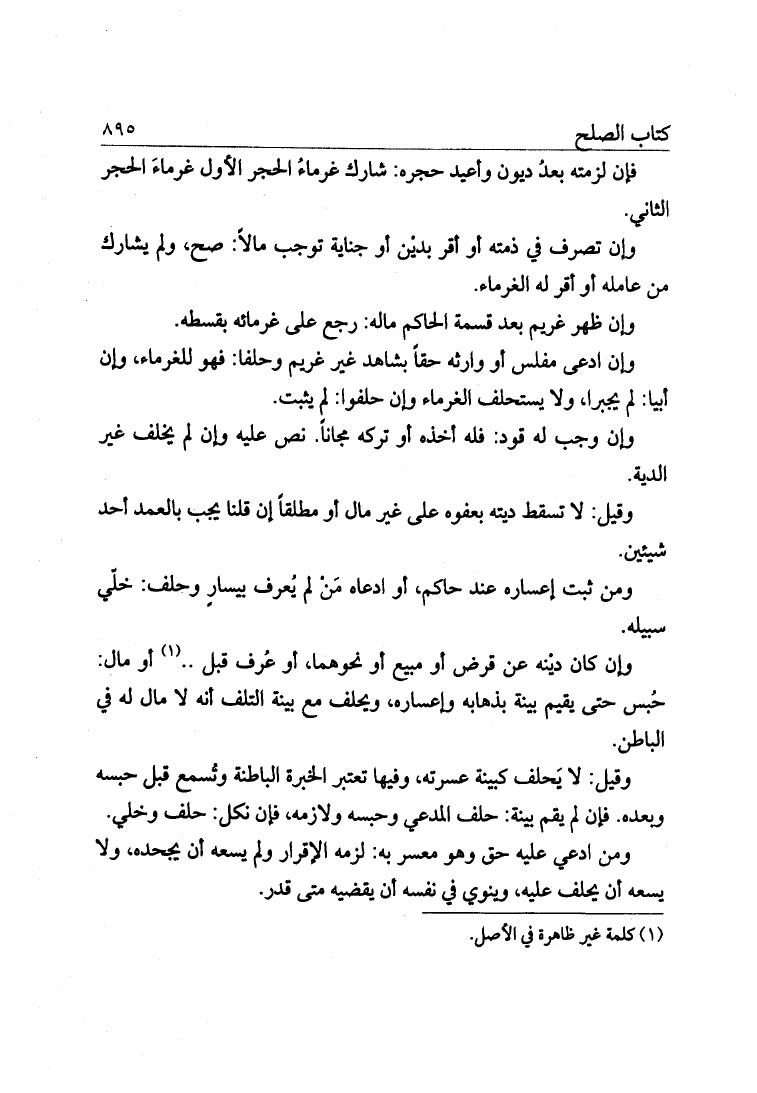 كتاب الصلح ٨٩٥
فإن لزمته بعدُ ديون وأعيد حجره: شارك غرماءُ الحجر الأول غرماءَ الحجر
الثاني.
وإن تصرف في ذمته أو أقر بديْن أو جناية توجب مالاً: صح، ولم يشارك
من عامله أو أقر له الغرماء.
وإن ظهر غريم بعد قسمة الحاكم ماله: رجع على غرمائه بقسطه.
وإن ادعى مفلس أو وارثه حقاً بشاهد غير غريم وحلفا: فهو للغرماء، وإن
أبيا: لم يجبرا، ولا يستحلف الغرماء وإن حلفوا: لم يثبت.
وإن وجب له قود: فله أخذه أو تركه مجاناً. نص عليه وإن لم يخلف غير
الدية.
وقيل: لا تسقط ديته بعفوه على غير مال أو مطلقاً إن قلنا يجب بالعمد أحد
شيئين.
ومن ثبت إعساره عند حاكم، أو ادعاه مَنْ لم يُعرف بيسارٍ وحلف: خلّي
سبيله.
وإن كان ديْنه عن قرض أو مبيع أو نحوهما، أو عُرف قبل ..(١) أو مال:
حُبس حتى يقيم بينة بذهابه وإعساره، ويحلف مع بينة التلف أنه لا مال له في
الباطن.
وقيل: لا يَحلف كبينة عسرته، وفيها تعتبر الخبرة الباطنة وتُسمع قبل حبسه
وبعده. فإن لم يقم بينة: حلف المدعي وحبسه ولازمه، فإن نكل: حلف وخلي.
ومن ادعي عليه حق وهو معسر به: لزمه الإقرار ولم يسعه أن يجحده، ولا
يسعه أن يحلف عليه، وينوي في نفسه أن يقضيه متى قدر.
(١) كلمة غير ظاهرة في الأصل.